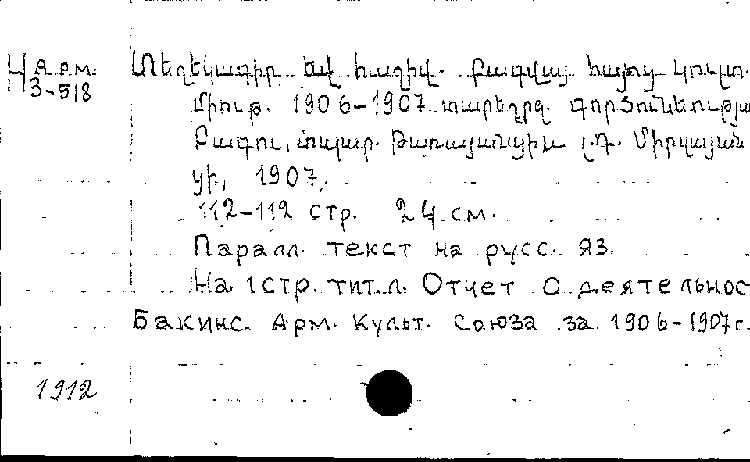 Ч я арм. Տեղեկագիր եվ հաշիվ. Բագվայ հայոց կուլտ.
3-518
Միութ. 1906-1907 տարեշրջ. գործունեության
Բագու, տպար. Թառայանցի
1907,
112-112 стр. 24 см.
Паралл. текст на русс. яз.
На 1 стр. тит. л. Отчет о деятельнос
Бакинс. Арм. Культ. Союза за 1906-1907 г.
1912